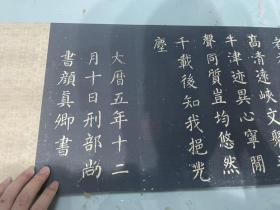 高清遠峽文翳
牛津迹異心寧閒
聲同質豈均悠然
千載後知我挹光
塵
大曆五年十二
月十日刑部尚
書顔真卿書